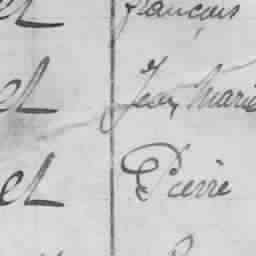 et françois
et Jean Marie
et Pierre